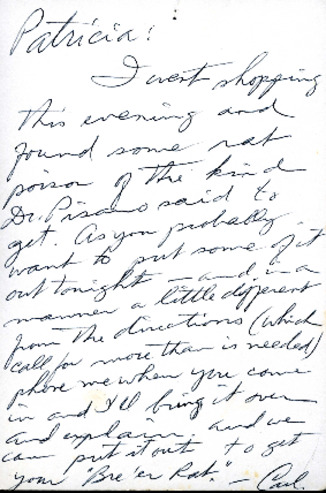 Patricia:
I went shopping
this evening and
found some rat
poison of the kind
Dr. Pisano said to
get. As you probably
want to put some of it
out tonight — and in a
manner a little different
from the directions (which
call for more than is needed)
phone me when you come
in and I'll bring it over
and explain, and we
can put it out to get
your "Bre'er Rat." — Carl.